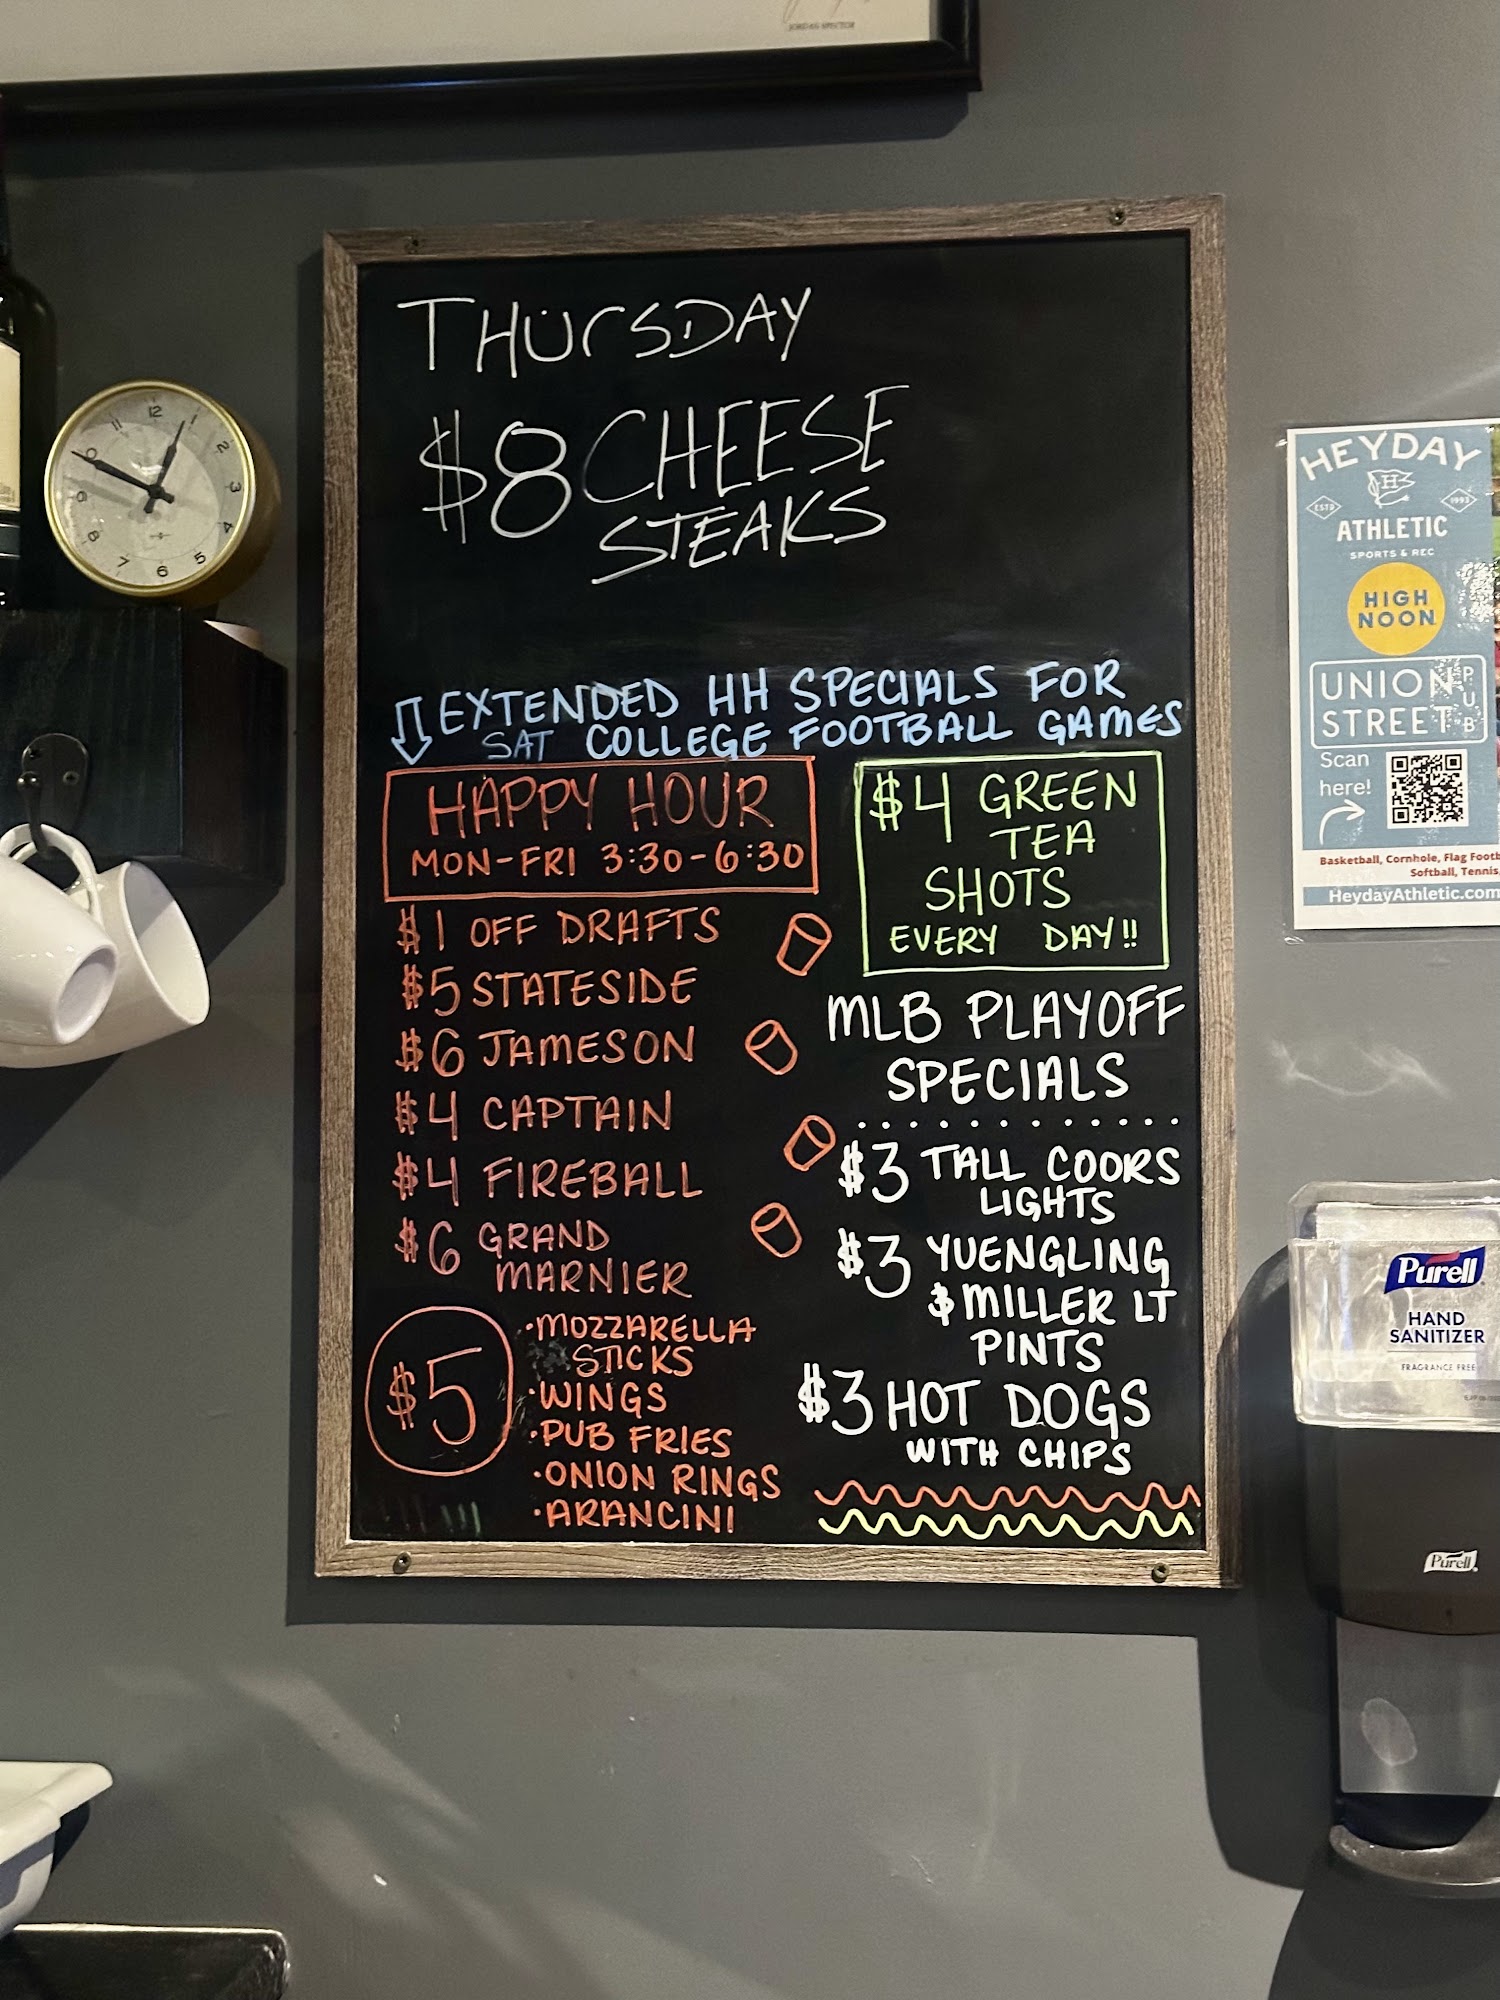 THURSDAY
$8 CHEESE
STEAKS
EXTENDED HH SPECIALS FOR
SAT COLLEGE FOOTBALL GAMES
HAPPY HOUR
MON-FRI 3:30-6:30
$1 OFF DRAFTS
$5 STATESIDE
$6 JAMESON
$4 CAPTAIN
$4 FIREBALL
$6 GRAND
MARNIER
$5
·MOZZARELLA
STICKS
·WINGS
·PUB FRIES
·ONION RINGS
·ARANCINI
$4 GREEN
TEA
SHOTS
EVERY DAY!!
MLB PLAYOFF
SPECIALS
$3 TALL COORS
LIGHTS
$3 YUENGLING
$ MILLER LT
PINTS
$3 HOT DOGS
WITH CHIPS
12
1
2
3
4
5
6
7
8
9
11
HEYDAY
H
ESTD
1993
ATHLETIC
SPORTS & REC
HIGH
NOON
UNION
STREET
PUB
Scan
here!
Basketball, Cornhole, Flag Footb
Softball, Tennis,
HeydayAthletic.com
Purell
HAND
SANITIZER
FRAGRANCE FREE
Purell